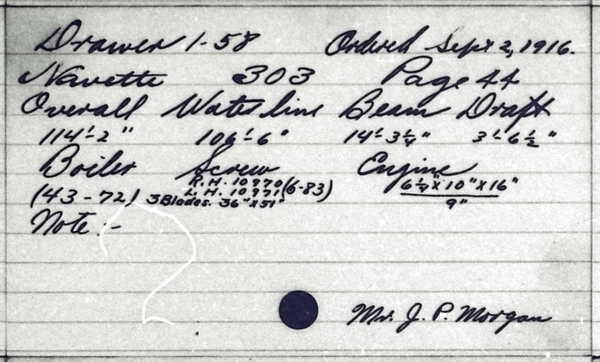 Drawer 1-58 Ordered Sept 2, 1916.
Navette 303 Page 44
Overall Water line Beam Draft
114'-2" 106'-6" 14'-3¼" 3'-6½"
Boiler Screw Engine
R.H. 10970 (6-83) 6¼"x10"x16"
L.H. 10971 9"
(43-72) 3 Blades. 36"x51"
Note:-
Mr. J. P. Morgan